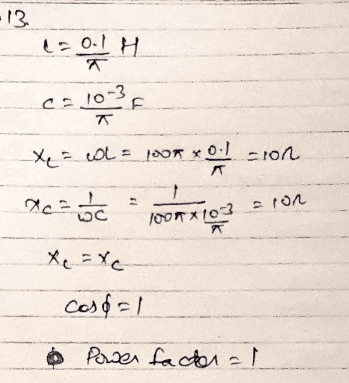 13.
L = 0.1/π H
C = 10⁻³/π F
X_L = ωL = 100π × 0.1/π = 10Ω
X_C = 1/ωC = 1/(100π × 10⁻³/π) = 10Ω
X_L = X_C
cosϕ = 1
Power factor = 1